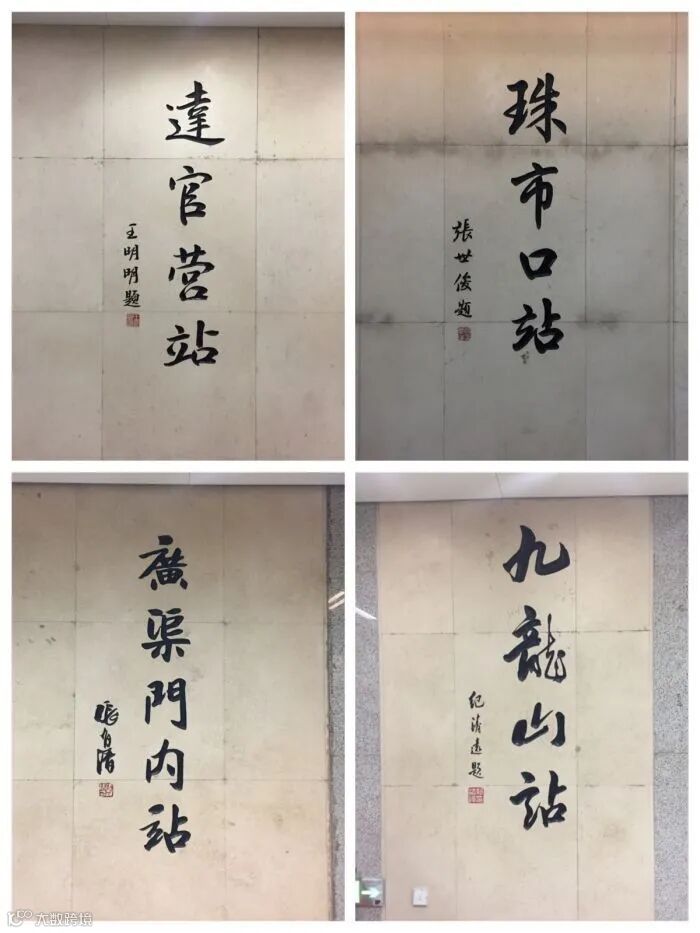 達官营站
王明明題
珠市口站
張世俊题
廣渠門内站
九龍山站
纪清遠题
大数跨境